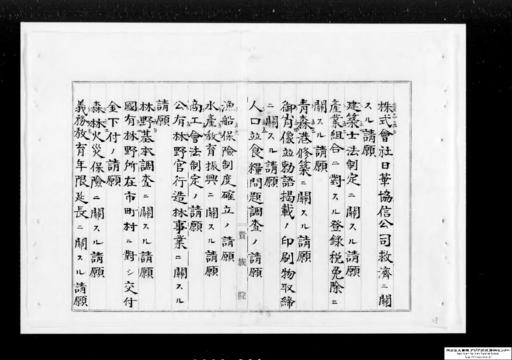 株式會社日華協信公司救濟ニ關
スル請願
建築士法制定ニ關スル請願
産業組合ニ對スル登録税免除ニ
關スル請願
青森港修築ニ關スル請願
御肖像並勅語掲載ノ印刷物取締
ニ關スル請願
人口並食糧問題調査ノ請願
貴族院
漁船保險制度確立ノ請願
水産教育振興ニ關スル請願
商工會法制定ノ請願
公有林野官行造林事業ニ關スル
請願
林野基本調査ニ關スル請願
國有林野所在市町村ニ對シ交付
金下付ノ請願
森林火災保險ニ關スル請願
義務教育年限延長ニ關スル請願